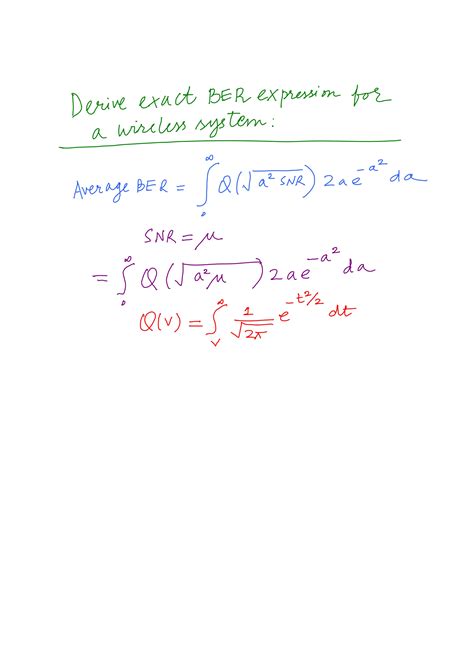 Derive exact BER expression for
a wireless system:
Average BER = ∫₀^∞ Q(√(a² SNR)) 2ae^(-a²) da
SNR = μ
= ∫₀^∞ Q(√(a²μ)) 2ae^(-a²) da
Q(v) = ∫ᵥ^∞ 1/√(2π) e^(-t²/2) dt